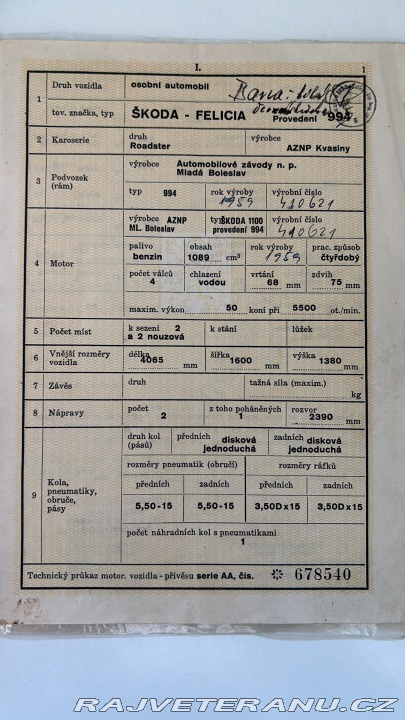 I. 1
1 Druh vozidla osobní automobil Barva:
tov. značka, typ ŠKODA - FELICIA Provedení 994
2 Karoserie druh Roadster výrobce AZNP Kvasiny
3 Podvozek (rám) výrobce Automobilové závody n. p. Mladá Boleslav
typ 994 rok výroby 1959 výrobní číslo 410621
4 Motor výrobce AZNP ML. Boleslav typ ŠKODA 1100 provedení 994 výrobní číslo 410621
palivo benzin obsah 1089 cm³ rok výroby 1959 prac. způsob čtyřdobý
počet válců 4 chlazení vodou vrtání 68 mm zdvih 75 mm
maxim. výkon 50 koní při 5500 ot./min.
5 Počet míst k sezení 2 a 2 nouzová k stání lůžek
6 Vnější rozměry vozidla délka 4065 mm šířka 1600 mm výška 1380 mm
7 Závěs druh tažná síla (maxim.) kg
8 Nápravy počet 2 z toho poháněných 1 rozvor 2390 mm
9 Kola, pneumatiky, obruče, pásy druh kol (pásů) předních disková jednoduchá zadních disková jednoduchá
rozměry pneumatik (obručí) rozměry ráfků
předních zadních předních zadních
5,50-15 5,50-15 3,50Dx15 3,50Dx15
počet náhradních kol s pneumatikami
1
Technický průkaz motor. vozidla - přívěsu serie AA, čís. 678540
RAJVETERANU.CZ